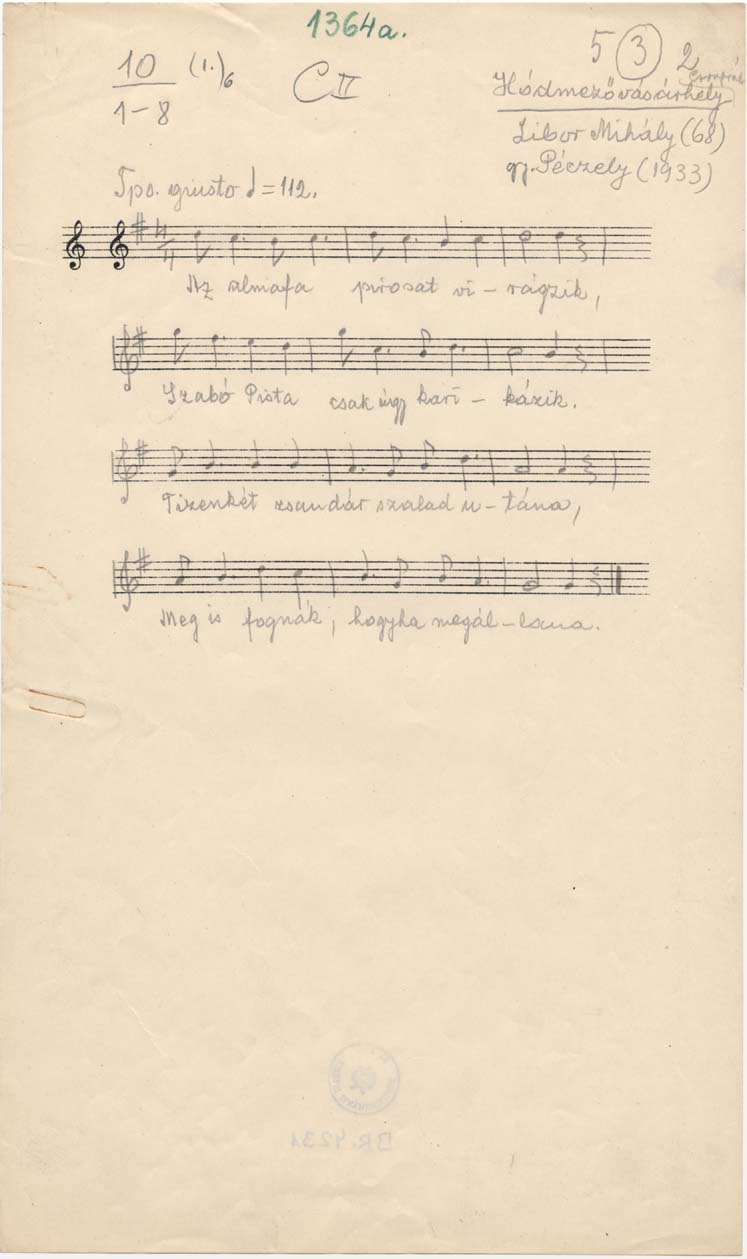 1364a.
10 (1.)6
1-8
C II
5 3 2
Hódmezővásárhely
Libor Mihály (68)
gy. Péczely (1933)
Tpo. giusto = 112.
Az almafa pirosat vi - rágzik,
Szabó Pista csak úgy kari - kázik.
Tizenkét zsandár szalad u - tána,
Meg is fognák, hogyha megál - lana.
BR. 4231